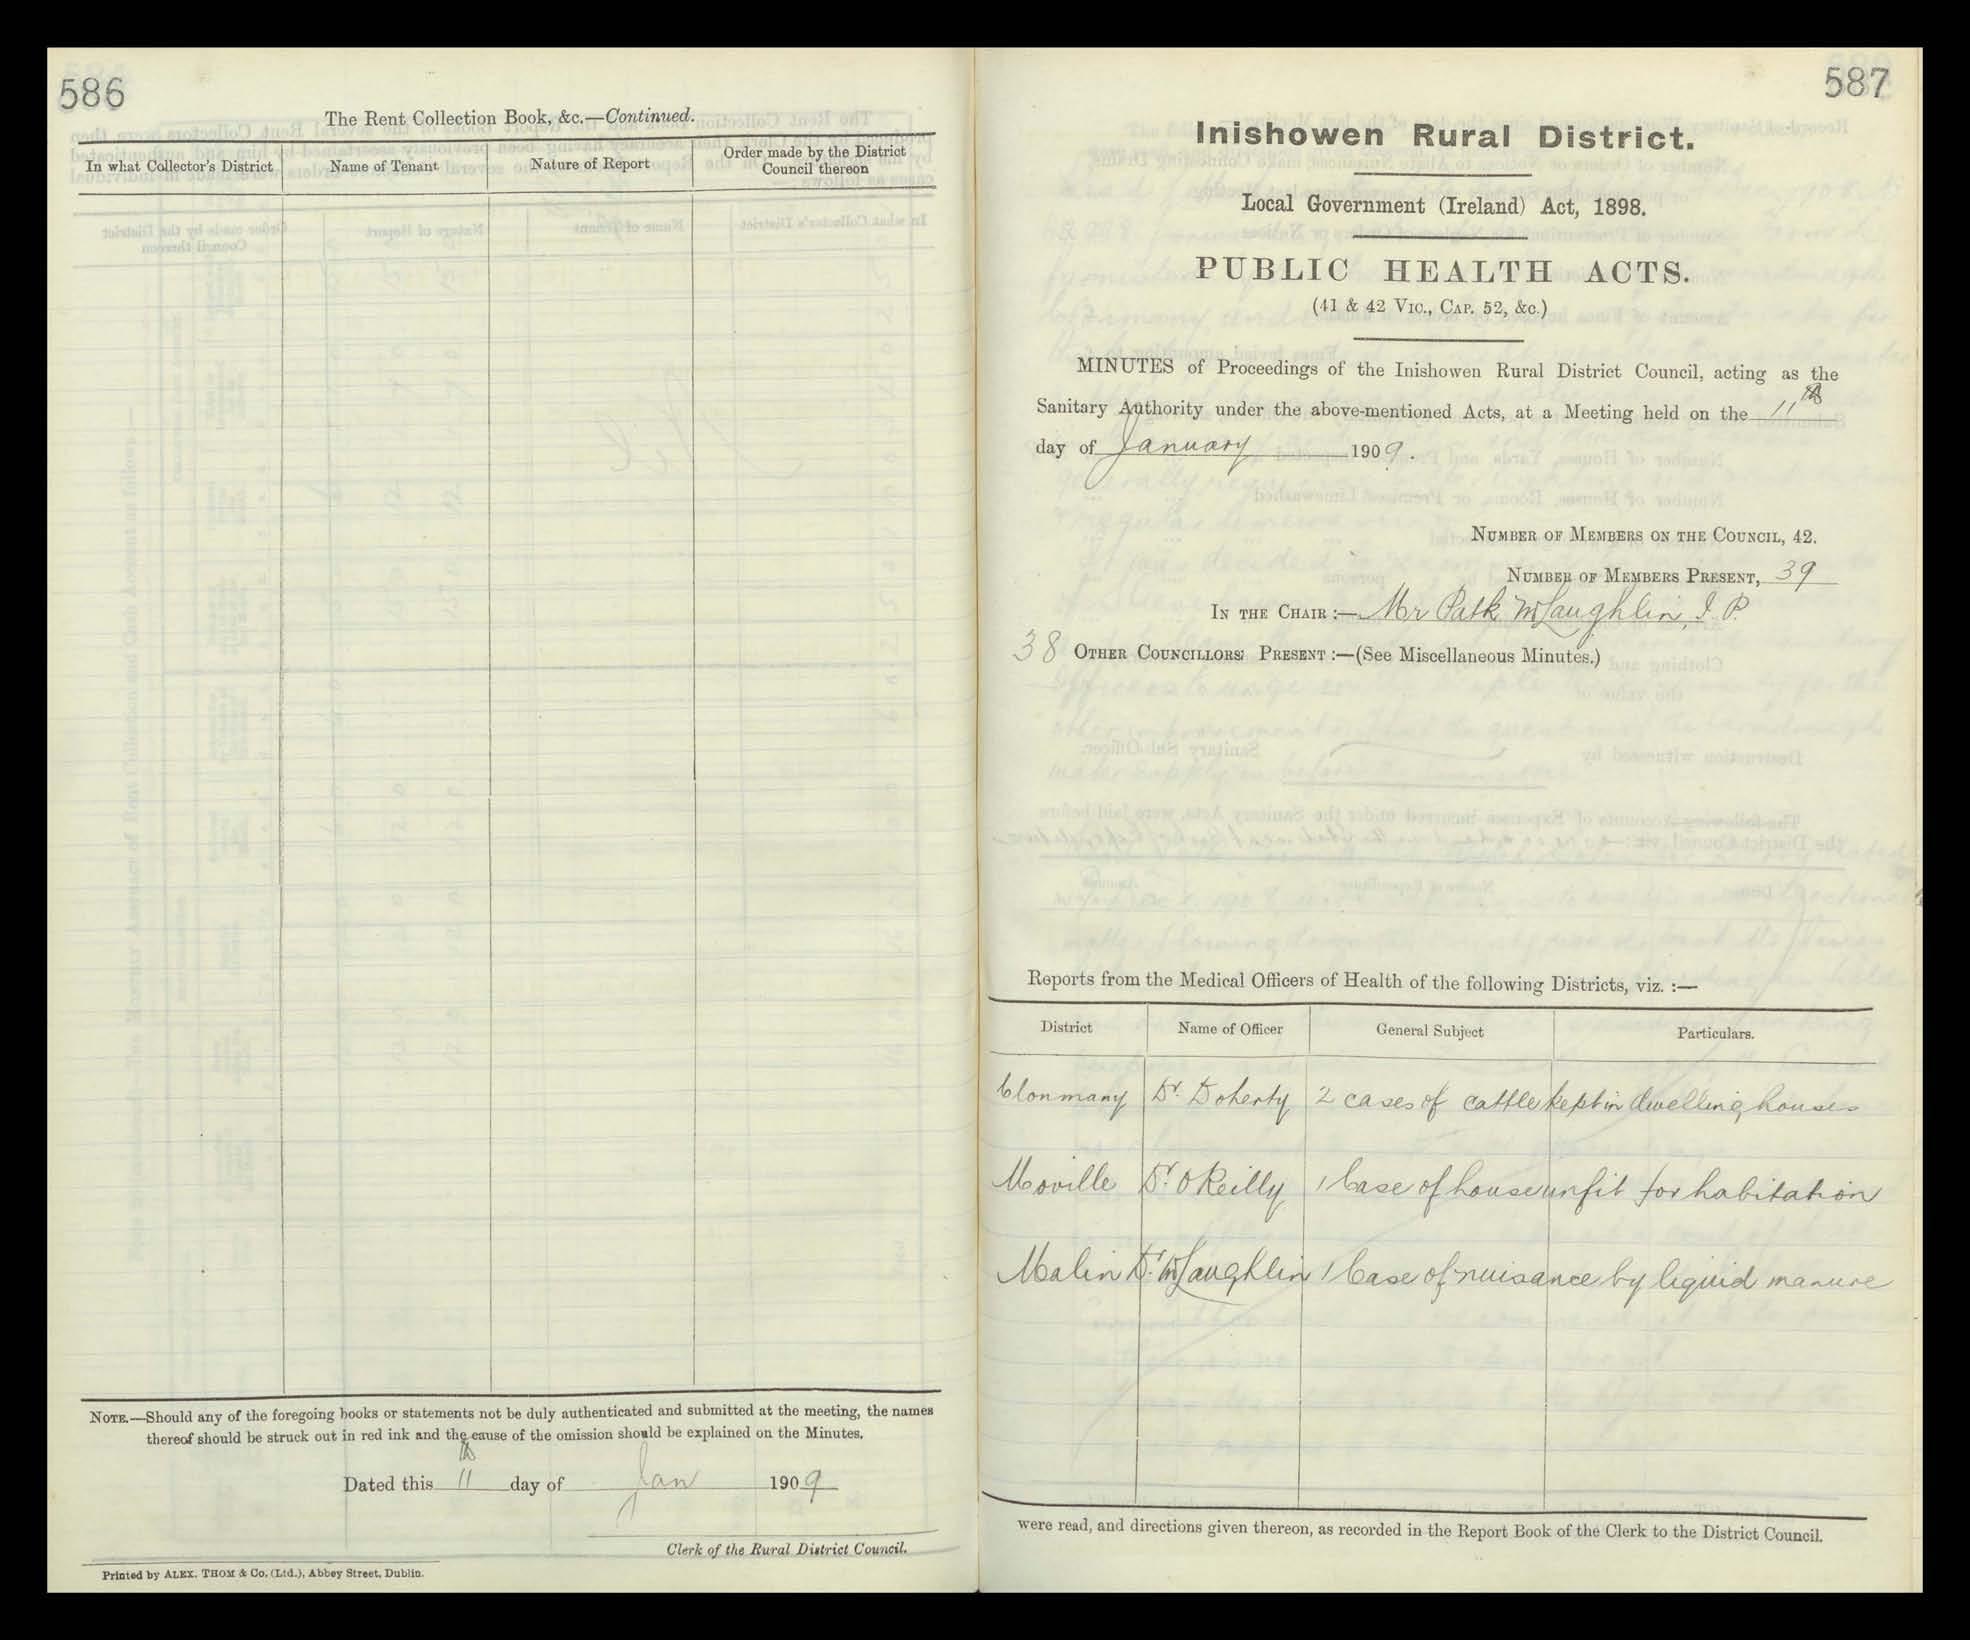 586
The Rent Collection Book, &c.—Continued.
In what Collector's District
Name of Tenant
Nature of Report
Order made by the District
Council thereon
NOTE.—Should any of the foregoing books or statements not be duly authenticated and submitted at the meeting, the names
thereof should be struck out in red ink and the cause of the omission should be explained on the Minutes.
Dated this 11th day of Jan 1909
Clerk of the Rural District Council.
Printed by ALEX. THOM & Co. (Ltd.), Abbey Street, Dublin.
587
Inishowen Rural District.
Local Government (Ireland) Act, 1898.
PUBLIC HEALTH ACTS.
(41 & 42 VIC., CAP. 52, &c.)
MINUTES of Proceedings of the Inishowen Rural District Council, acting as the
Sanitary Authority under the above-mentioned Acts, at a Meeting held on the 11th
day of January 1909.
NUMBER OF MEMBERS ON THE COUNCIL, 42.
NUMBER OF MEMBERS PRESENT, 39
IN THE CHAIR :— Mr Patk McLaughlin, J. P.
38 OTHER COUNCILLORS PRESENT :—(See Miscellaneous Minutes.)
Reports from the Medical Officers of Health of the following Districts, viz. :—
District Name of Officer General Subject Particulars.
Clonmany Dr. Doherty 2 cases of cattle kept in dwelling houses
Moville Dr. O'Reilly 1 Case of house unfit for habitation
Malin Dr. McLaughlin 1 Case of nuisance by liquid manure
were read, and directions given thereon, as recorded in the Report Book of the Clerk to the District Council.